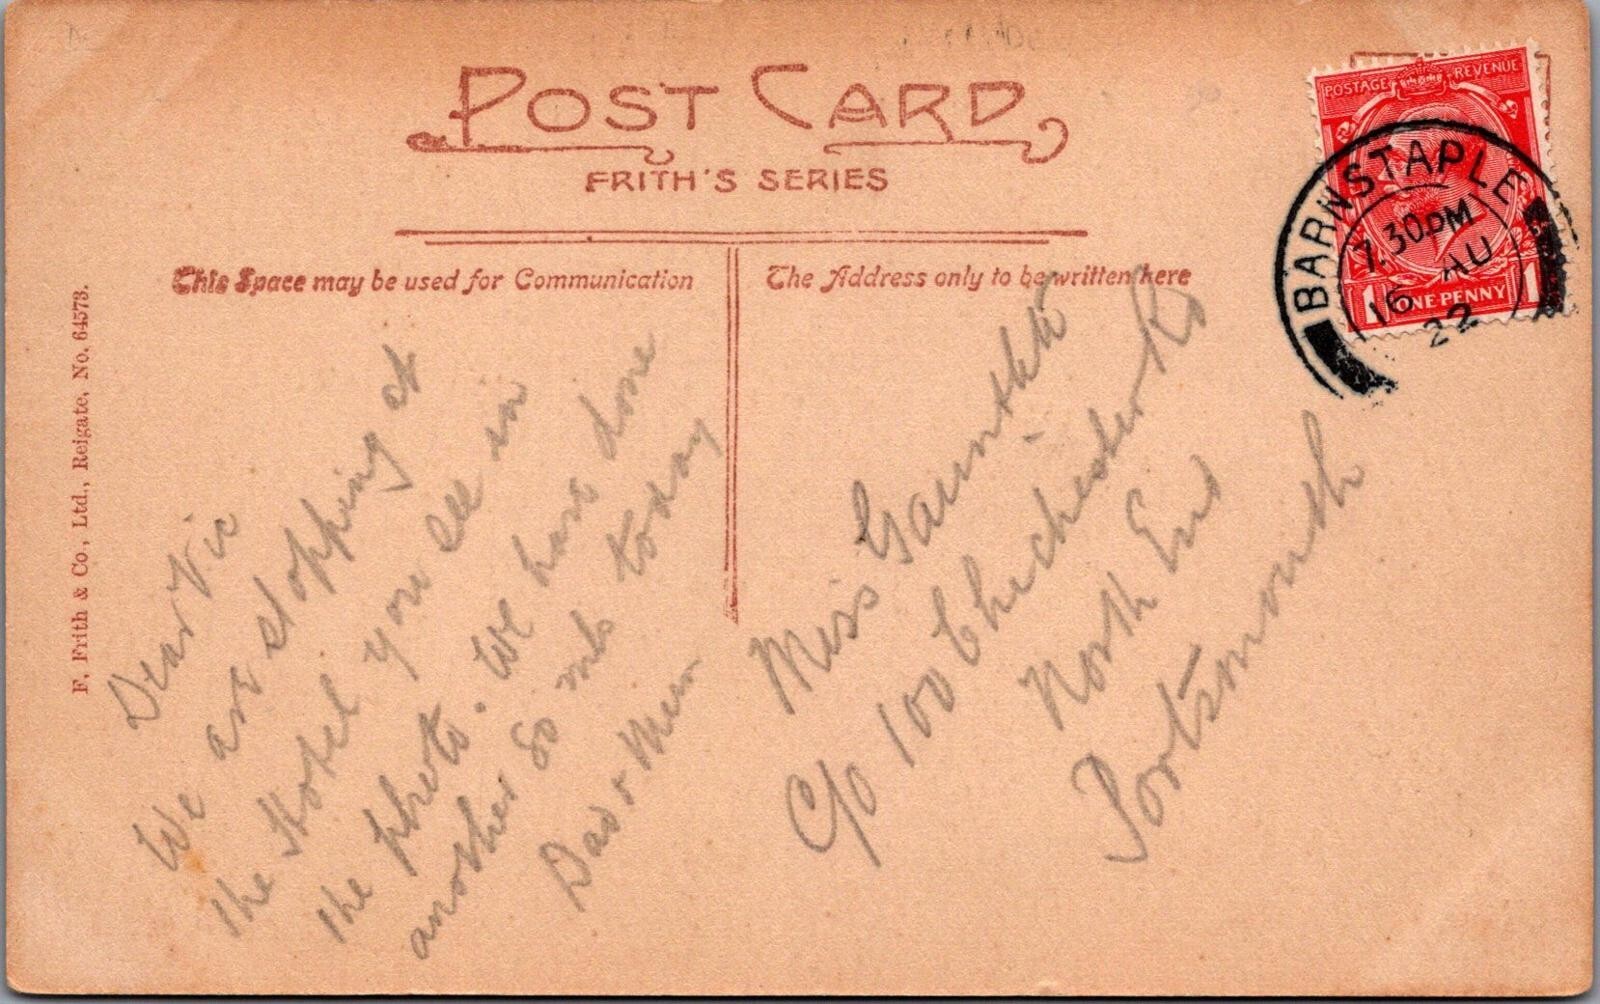 POST CARD
FRITH'S SERIES
This Space may be used for Communication
The Address only to be written here
F. Frith & Co., Ltd., Reigate, No. 64573.
POSTAGE REVENUE
1 ONE PENNY 1
BARNSTAPLE
7.30PM
16 AU
22
Dear Vic
We are stopping at
the Hotel you see in
the photo. We have done
another 80 mls today
Dad & Mum
Miss
C/o 100 Chichester Rd
North End
Portsmouth